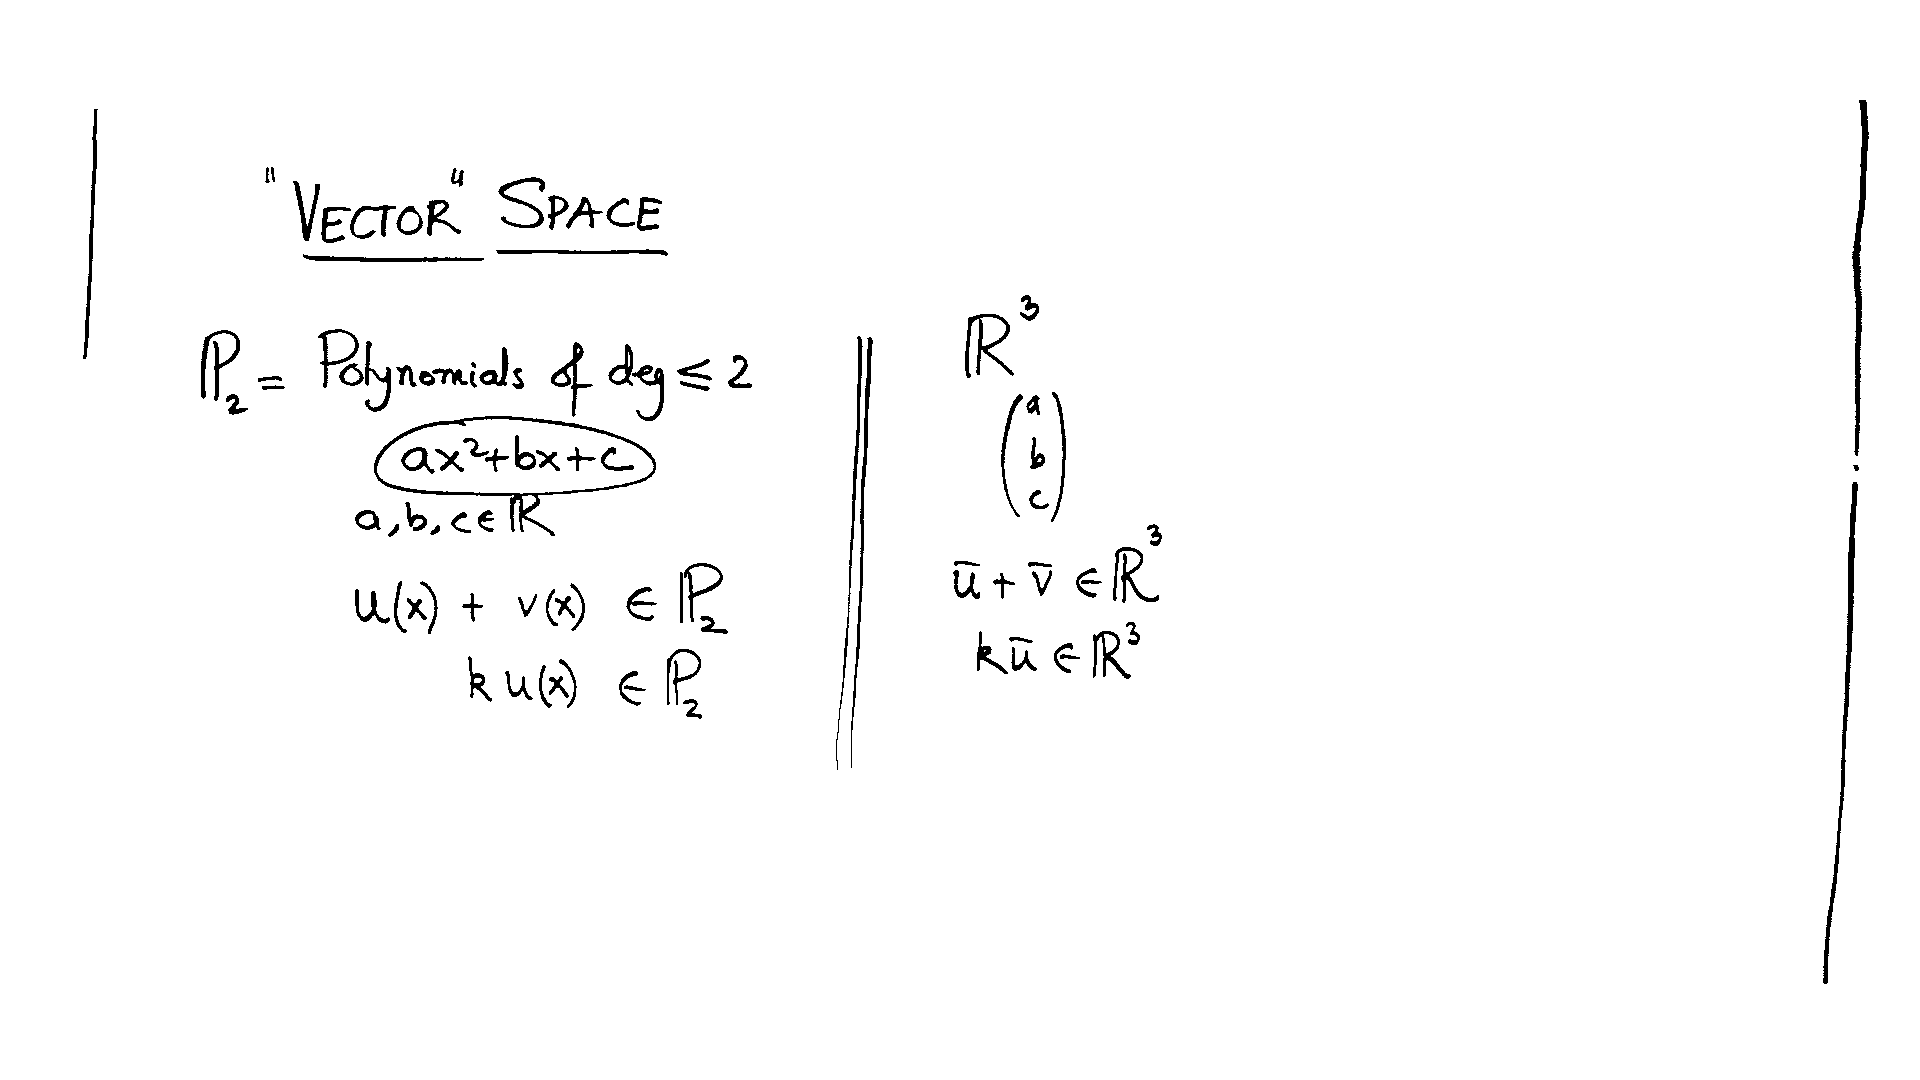 "VECTOR" SPACE
ℙ₂ = Polynomials of deg ≤ 2
ax²+bx+c
a, b, c ∈ ℝ
u(x) + v(x) ∈ ℙ₂
k u(x) ∈ ℙ₂
ℝ³
a
b
c
ū + v̄ ∈ ℝ³
kū ∈ ℝ³